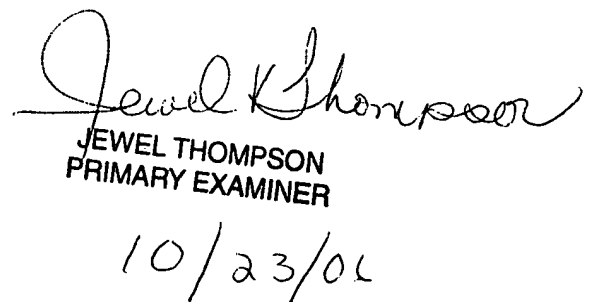 Jewel K Thompson
JEWEL THOMPSON
PRIMARY EXAMINER
10/23/06